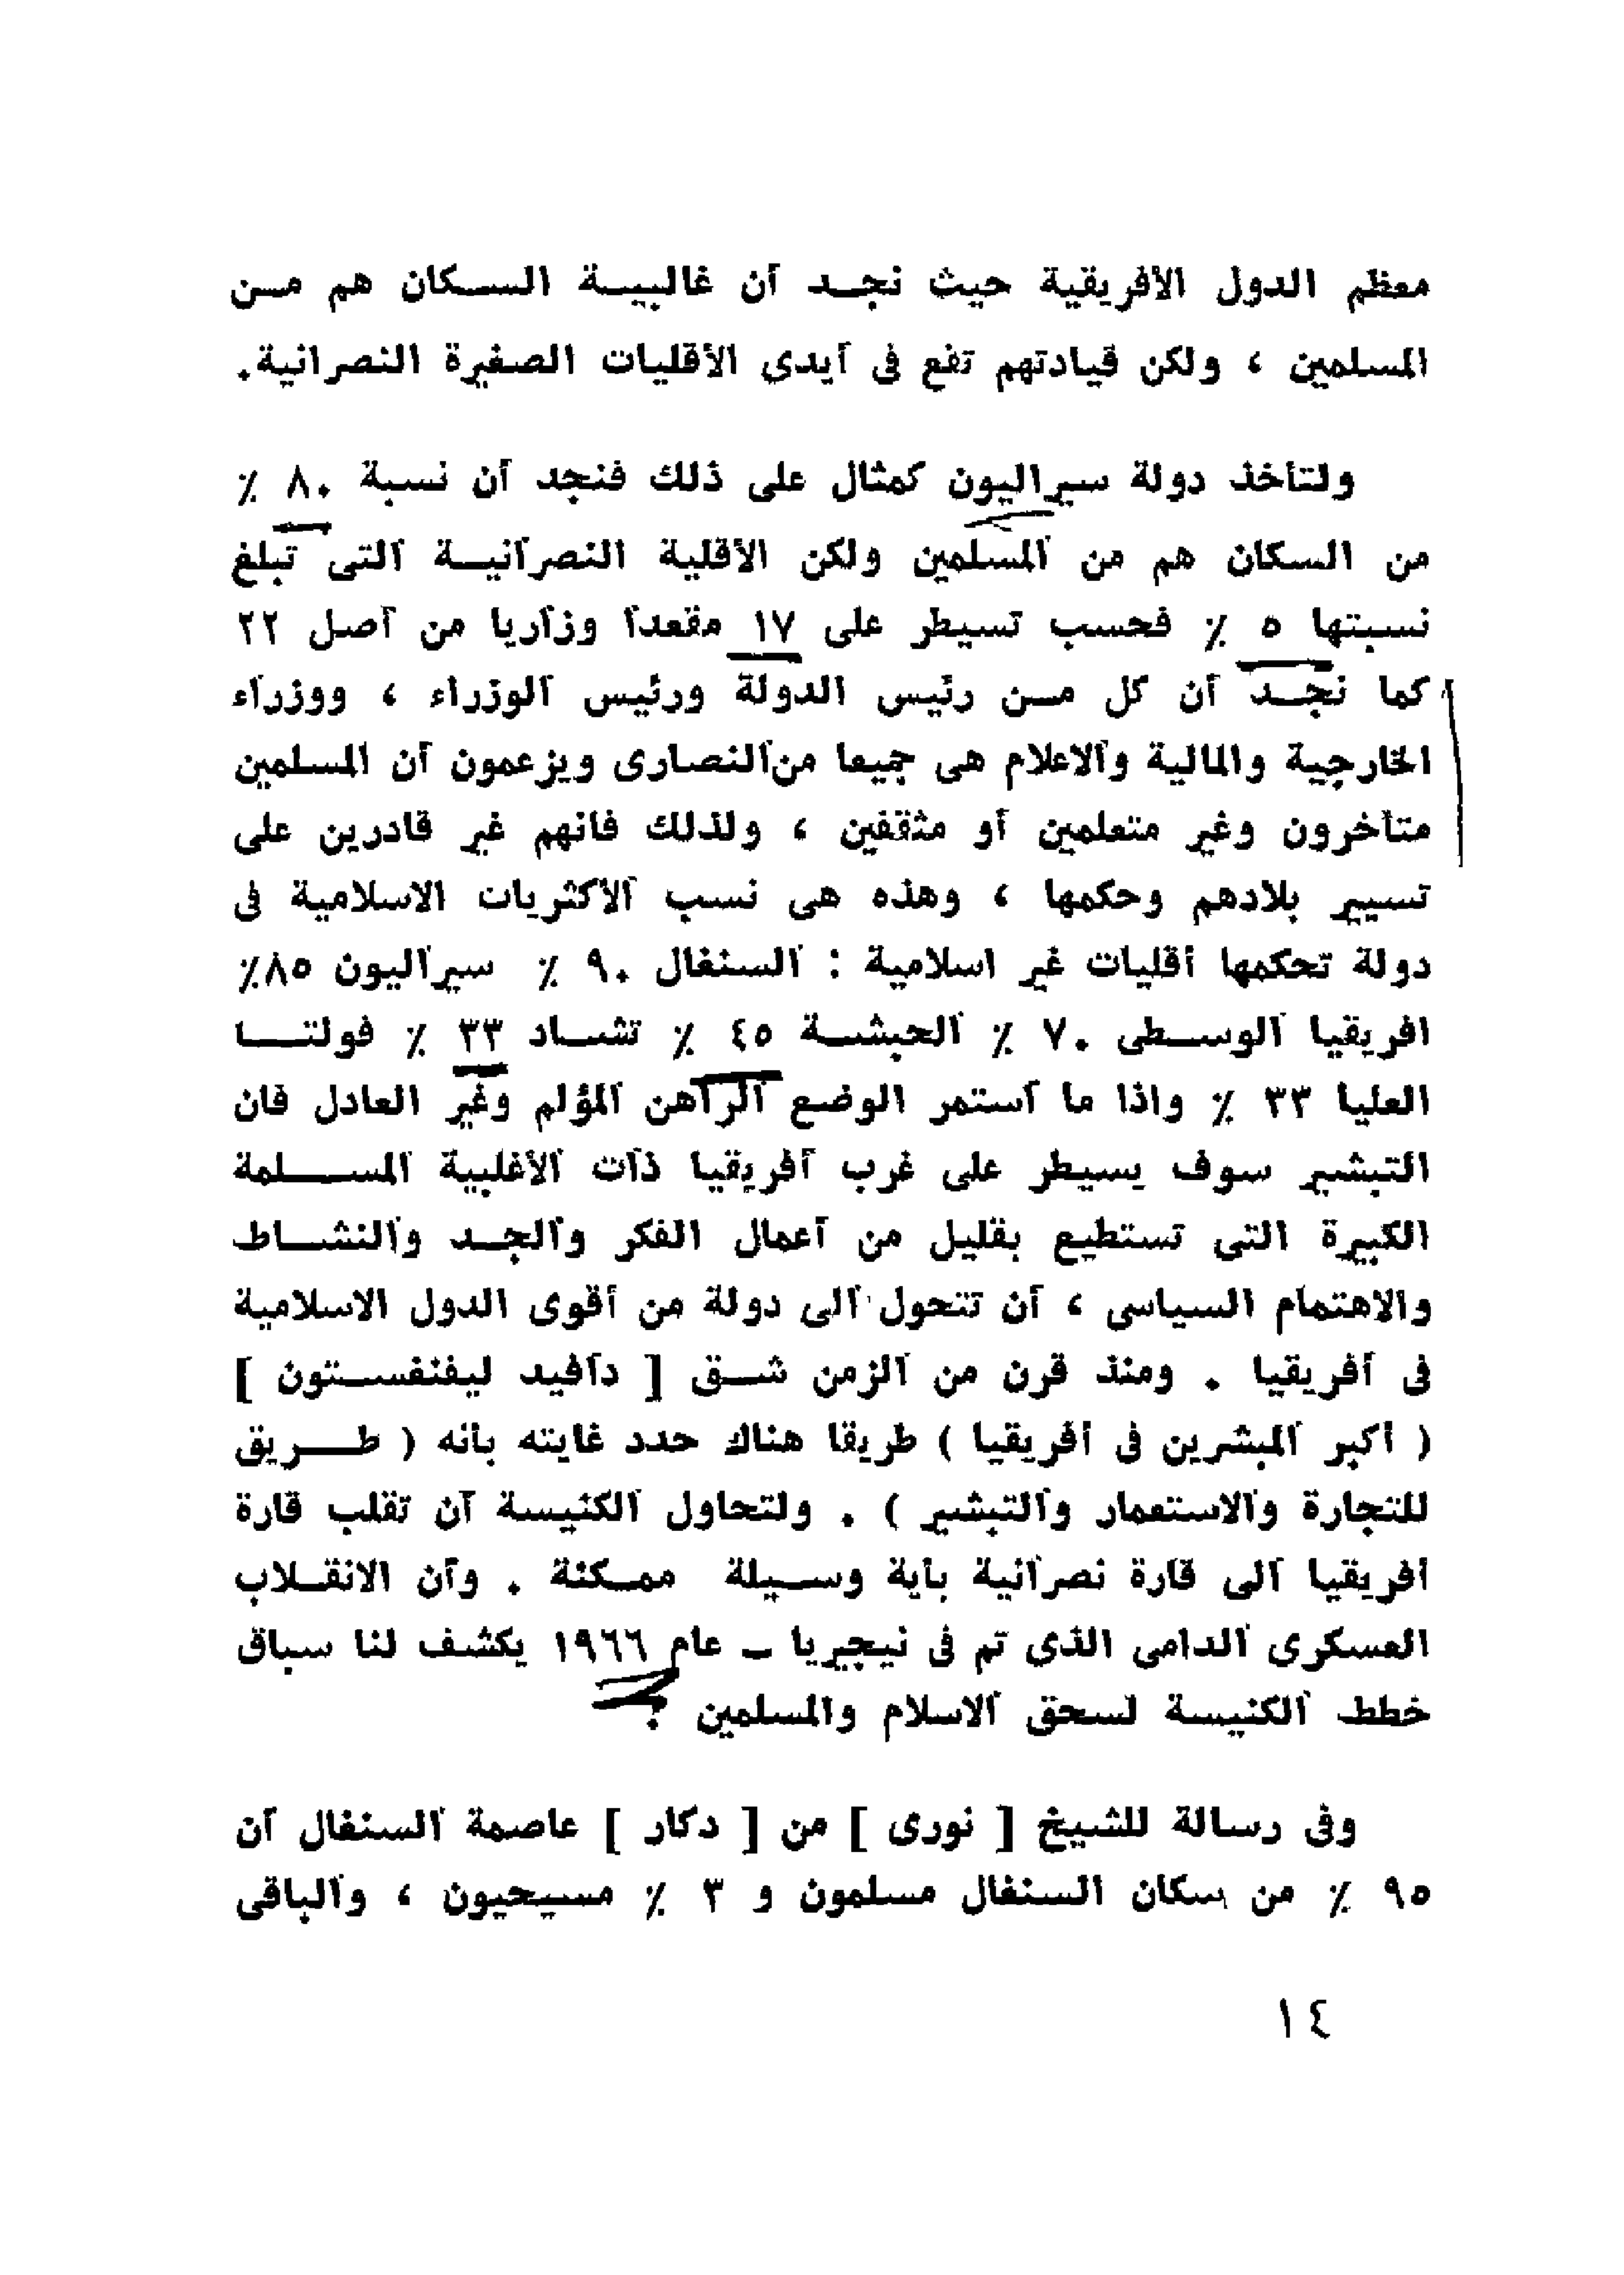 معظم الدول الأفريقية حيث نجد أن غالبية السكان هم من
المسلمين ، ولكن قيادتهم تقع فى أيدى الأقليات الصغيرة النصرانية .
ولتأخذ دولة سيراليون كمثال على ذلك فنجد أن نسبة ٨٠ ٪
من السكان هم من المسلمين ولكن الأقلية النصرانية التى تبلغ
نسبتها ٥ ٪ فحسب تسيطر على ١٧ مقعدا وزاريا من أصل ٢٢
كما نجد أن كل من رئيس الدولة ورئيس الوزراء ، ووزراء
الخارجية والمالية والاعلام هى جميعا من النصارى ويزعمون أن المسلمين
متأخرون وغير متعلمين أو مثقفين ، ولذلك فانهم غير قادرين على
تسيير بلادهم وحكمها ، وهذه هى نسب الأكثريات الاسلامية فى
دولة تحكمها أقليات غير اسلامية : السنغال ٩٠ ٪ سيراليون ٨٥٪
افريقيا الوسطى ٧٠ ٪ الحبشة ٤٥ ٪ تشاد ٣٣ ٪ فولتا
العليا ٣٣ ٪ واذا ما استمر الوضع الراهن المؤلم وغير العادل فان
التبشير سوف يسيطر على غرب أفريقيا ذات الأغلبية المسلمة
الكبيرة التى تستطيع بقليل من أعمال الفكر والجد والنشاط
والاهتمام السياسى ، أن تتحول الى دولة من أقوى الدول الاسلامية
فى أفريقيا . ومنذ قرن من الزمن شق [ دافيد ليفنفستون ]
( أكبر المبشرين فى أفريقيا ) طريقا هناك حدد غايته بأنه ( طريق
للتجارة والاستعمار والتبشير ) . ولتحاول الكنيسة أن تقلب قارة
أفريقيا الى قارة نصرانية بأية وسيلة ممكنة . وأن الانقلاب
العسكرى الدامى الذى تم فى نيجيريا ـ عام ١٩٦٦ يكشف لنا سباق
خطط الكنيسة لسحق الاسلام والمسلمين ؟
وفى رسالة للشيخ [ نورى ] من [ دكار ] عاصمة السنغال أن
٩٥ ٪ من سكان السنغال مسلمون و ٣ ٪ مسيحيون ، والباقى
١٤